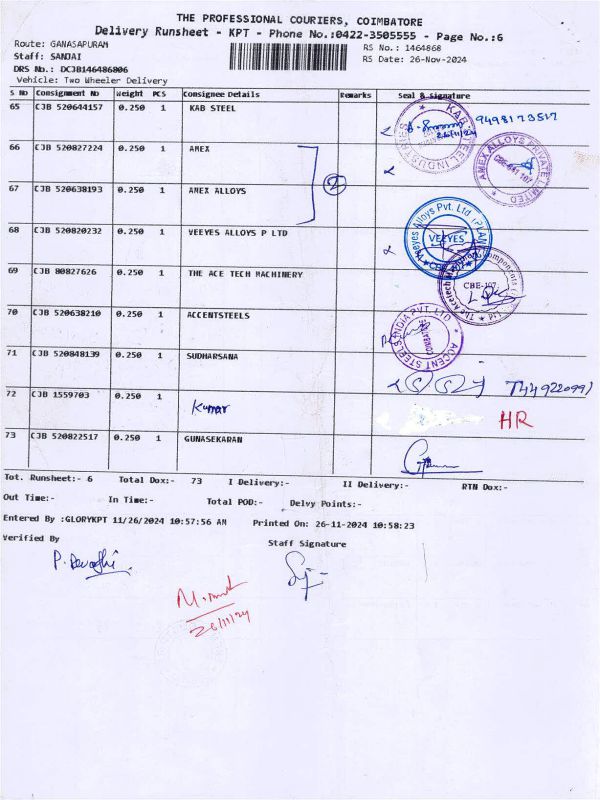 THE PROFESSIONAL COURIERS, COIMBATORE
Delivery Runsheet - KPT - Phone No.:0422-3505555 - Page No.:6
Route: GANASAPURAM RS No.: 1464868
Staff: SANJAI RS Date: 26-Nov-2024
DRS No.: DCJB146486806
Vehicle: Two Wheeler Delivery
S No Consignment No Weight PCS Consignee Details Remarks Seal & Signature
65 CJB 520644157 0.250 1 KAB STEEL 9498173517
KAB STEEL INDUSTRIES
26/11/24
66 CJB 520827224 0.250 1 AMEX
AMEX ALLOYS PRIVATE LIMITED
CBE-641 107
2
67 CJB 520638193 0.250 1 AMEX ALLOYS
68 CJB 520820232 0.250 1 VEEYES ALLOYS P LTD
Veeyes Alloys Pvt. Ltd
VEEYES
69 CJB 80827626 0.250 1 THE ACE TECH MACHINERY
CBE-107
70 CJB 520638210 0.250 1 ACCENTSTEELS
ACCENT STEELS INDIA PVT. LTD
71 CJB 520848139 0.250 1 SUDHARSANA
72 CJB 1559703 0.250 1 Kumar HR
73 CJB 520822517 0.250 1 GUNASEKARAN
Tot. Runsheet:- 6 Total Dox:- 73 I Delivery:- II Delivery:- RTN Dox:-
Out Time:- In Time:- Total POD:- Delvy Points:-
Entered By :GLORYKPT 11/26/2024 10:57:56 AM Printed On: 26-11-2024 10:58:23
Verified By Staff Signature
26/11/24